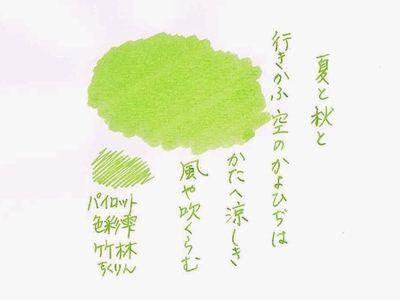 夏と秋と
行きかふ空のかよひぢは
かたへ涼しき
風や吹くらむ
パイロット
色彩雫
竹林
ちくりん